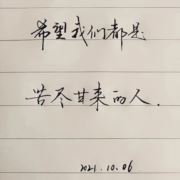 希望我们都是
苦尽甘来的人.
2021.10.06